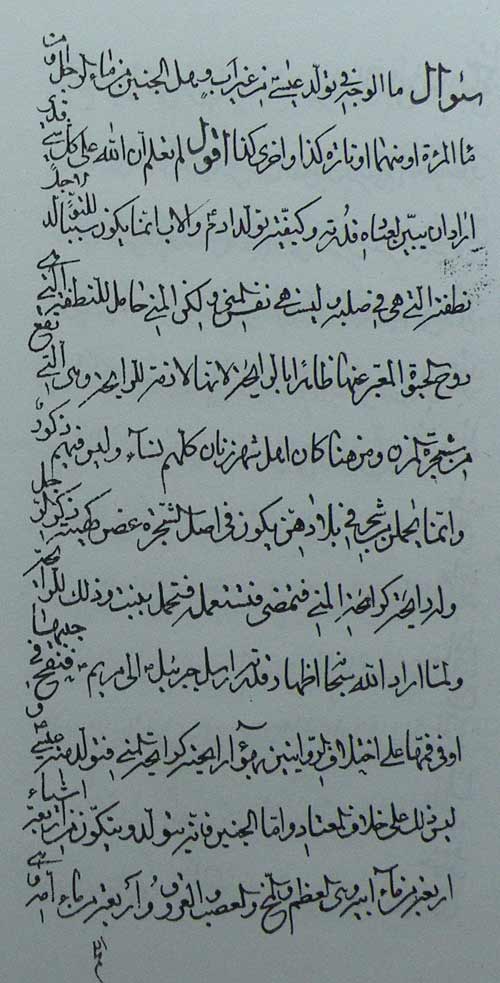 سئوال ما الوجه في تولد عيسى من غير اب و هل الجنين من ماء الرجل او من
ماء المرئة او منهما او تارة كذا و اخرى كذا اقول لم تعلم ان الله على كل شي قدير
اراد ان يبين لعباده قدرته و كيفية تولد ادم و الاب انما يكون سببا للتولد لاجل
نطفته التي هي في صلبه و ليست هي نفس المني و لكن المني حامل للنطفة التي هي
روح الحيوة المعبر عنها ظاهرا بالرايحة لانها لازمة للرايحة و هي التي تقع
من شجرة المزن و من هنا كان اهل شهر زنان كلهم نساء و ليس فيهم ذكور
و انما يحملن بشجر في بلادهن يكون في اصل الشجرة غصن كهيئة ذكر الرجل
وله رايحة كرايحة المني فتمضي فتستعمله فتحمل ببنت و ذلك للرايحة
و لما اراد الله سبحانه اظهار قدرته ارسل جبرئيل الى مريم فنفخ في جيبها
او في فمها على اختلاف الروايتين بهواء رايحته كرايحة المني فتولد منه عيسى و
ليس ذلك على خلاف المعتاد و اما الجنين فانه يتولد و يتكون من اربعة عشر اشياء
اربعة من ماء ابيه و هي العظم و المخ و العصب و العروق و اربعة من ماء امه و هي